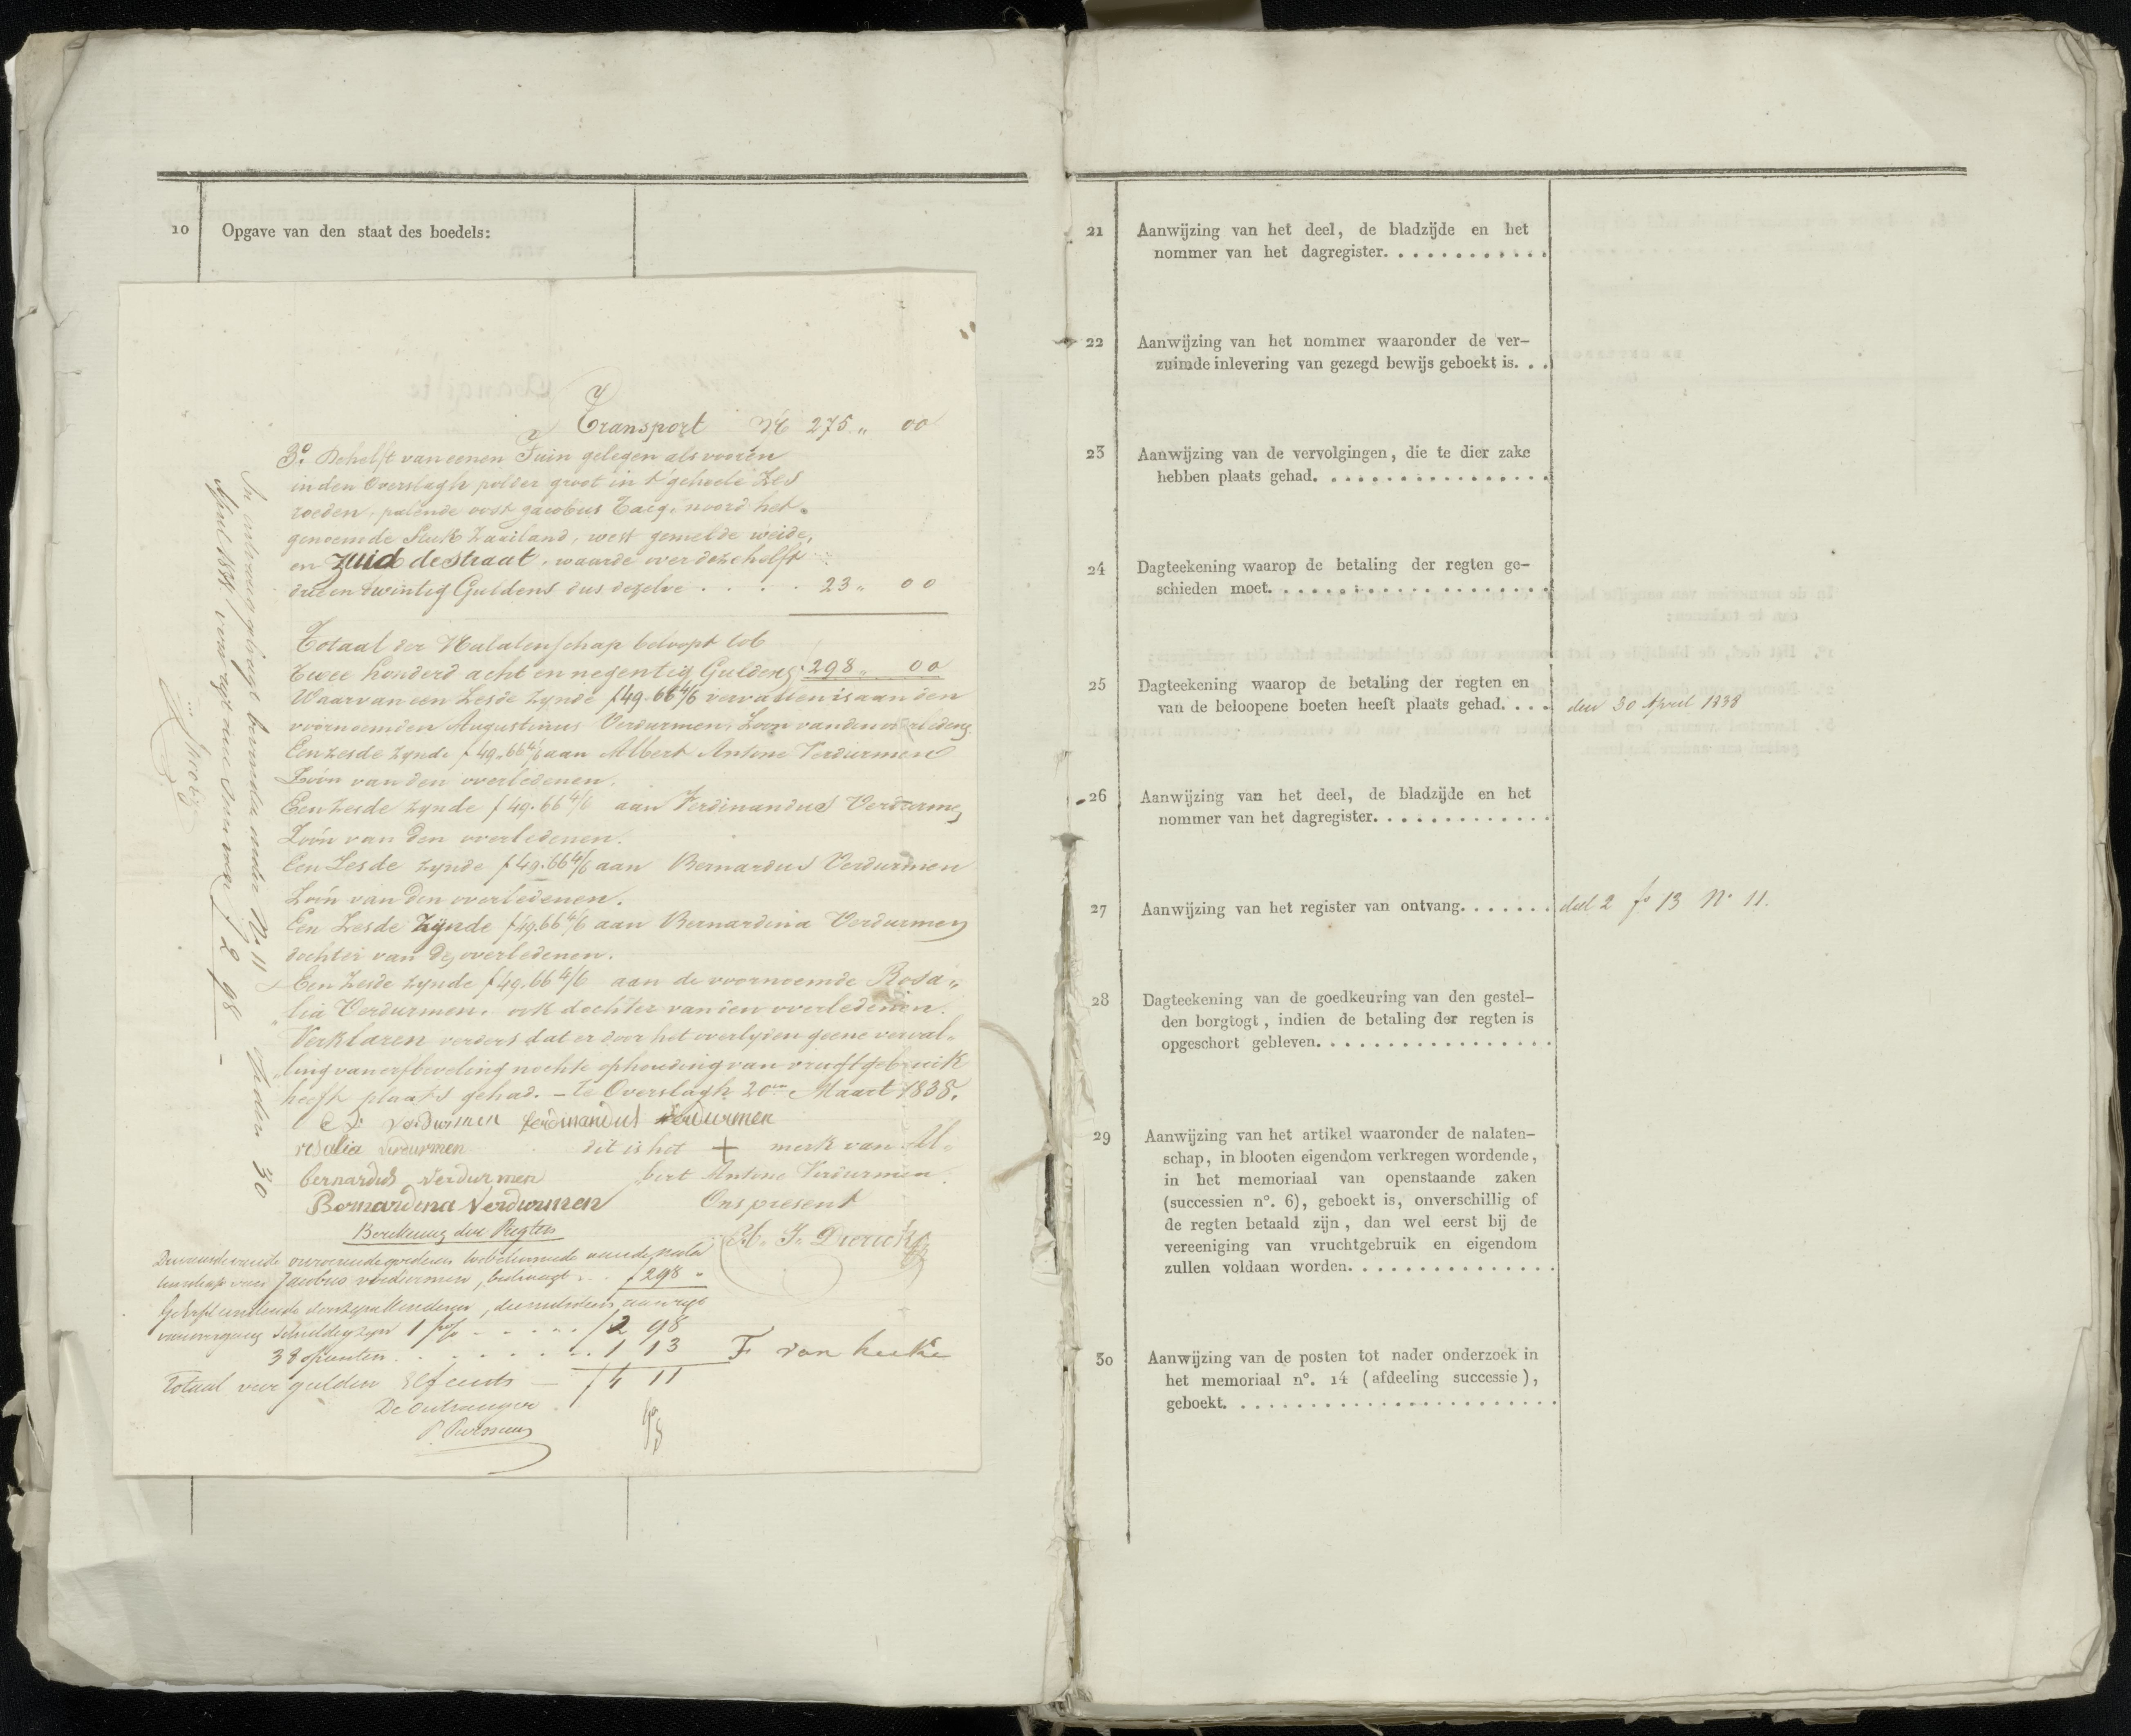 10 Opgave van den staat des boedels:
Transport N 275 „ 00
3º. De helft van eenen Tuin gelegen als vooren
in den Overslagh polder groot in 't geheele Zes
roeden, palende oost Jacobus noord het
genoemde Stuk Zaailand, west gemelde weide,
en Zuid de Straat, waarde over deze helft
drie en twintig Guldens dus dezelve . . . . 23 „ 00
Totaal der Nalatenschap beloopt tot
Twee honderd acht en negentig Guldens 298 „ 00
Waarvan een Zesde zynde f 49.66 4/6 vervallen is aan den
voornoemden Augustinus Verdurmen, Zoon van den overledenen.
Een zesde zynde f 49.66 4/6 aan Albert Antone Verdurmen
Zoón van den overledenen.
Een zesde zynde f 49.66 4/6 aan Ferdinandus Verdurmen
Zoón van den overledenen.
Een Zesde zynde f 49.66 4/6 aan Bernardus Verdurmen
Zoón van den overledenen.
Een Zesde Zynde f 49.66 4/6 aan Bernardina Verdurmen
dochter van den overledenen.
Een Zesde zynde f 49.66 4/6 aan de voornoemde Rosa„
lia Verdurmen, ook dochter van den overledenen.
Verklaren verders dat er door het overlyden geene verval„
„ling van erfbeveling nochte ophouding van vruchtgebruik
heeft plaats gehad. – te Overslagh 20en Maart 1838.
Verdurmen ferdinandus verdurmen
rosalia verdurmen dit is het + merk van Al„
bernardus verdurmen „bert Antone Verdurmen.
Bernardina Verdurmen Ons present
Berekening der Regten
De waarde van de onroerende goederen behoorende aan de nala
tenschap van Jacobus verdurmen, bedraagt . . f 298 „
van overgang schuldig zyn 1 pct . . . . f 2 98
38 opcenten . . . . . . . . 1 13 F van hecke
Totaal vier gulden Elf cents — f 4 11
De Ontvanger
In ontvang gebragt bevonden onder No 11 op den 30
April 1838, voor regt eene som van f 2 98 -
21 Aanwijzing van het deel, de bladzijde en het
nommer van het dagregister. . . . . . . . . . . .
22 Aanwijzing van het nommer waaronder de ver-
zuimde inlevering van gezegd bewijs geboekt is. . .
23 Aanwijzing van de vervolgingen, die te dier zake
hebben plaats gehad. . . . . . . . . . . . . . . . .
24 Dagteekening waarop de betaling der regten ge-
schieden moet. . . . . . . . . . . . . . . . . . . .
25 Dagteekening waarop de betaling der regten en
van de beloopene boeten heeft plaats gehad. . . . den 30 April 1838
26 Aanwijzing van het deel, de bladzijde en het
nommer van het dagregister. . . . . . . . . . . . .
27 Aanwijzing van het register van ontvang. . . . . . . deel 2 fo 13 No 11.
28 Dagteekening van de goedkeuring van den gestel-
den borgtogt, indien de betaling der regten is
opgeschort gebleven. . . . . . . . . . . . . . . . .
29 Aanwijzing van het artikel waaronder de nalaten-
schap, in blooten eigendom verkregen wordende,
in het memoriaal van openstaande zaken
(successien nº. 6), geboekt is, onverschillig of
de regten betaald zijn, dan wel eerst bij de
vereeniging van vruchtgebruik en eigendom
zullen voldaan worden. . . . . . . . . . . . . . .
30 Aanwijzing van de posten tot nader onderzoek in
het memoriaal nº. 14 (afdeeling successie),
geboekt. . . . . . . . . . . . . . . . . . . . . . . .